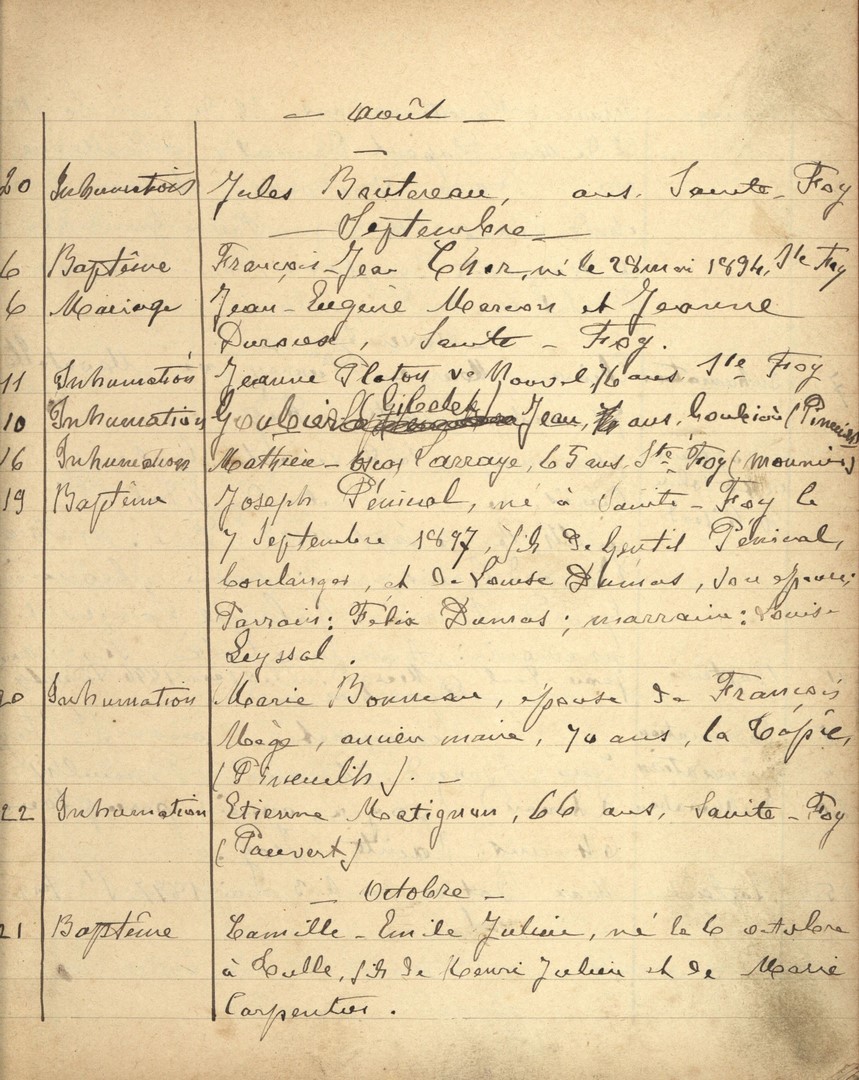 — Août —
20 Inhumation Jules Bautereau, ans. Sainte-Foy
— Septembre —
6 Baptême François-Jean né le 28 mai 1894, Ste Foy
6 Mariage Jean-Eugène Marcon et Jeanne
Sainte-Foy.
11 Inhumation Jeanne Platon ve 76 ans Ste Foy
10 Inhumation Jean, ans,
16 Inhumation Mathieu- Larraye, 65 ans. Ste Foy
19 Baptême Joseph Pénical, né à Sainte-Foy le
7 Septembre 1897, fils de Gentil Pénical,
boulanger, et de Louise Dumas, son épouse;
Parrain: Félix Dumas; marraine: Louise
Leyssal.
20 Inhumation Marie Bonneau, épouse de François
Mège, ancien maire, 70 ans, la
(Pineuilh). —
22 Inhumation Etienne Matignon, 66 ans, Sainte-Foy
(Pauvert)
— Octobre —
21 Baptême Camille-Emile Julien, né le 6 octobre
à Tulle, fils de Henri Julien et de Marie
Carpentier.